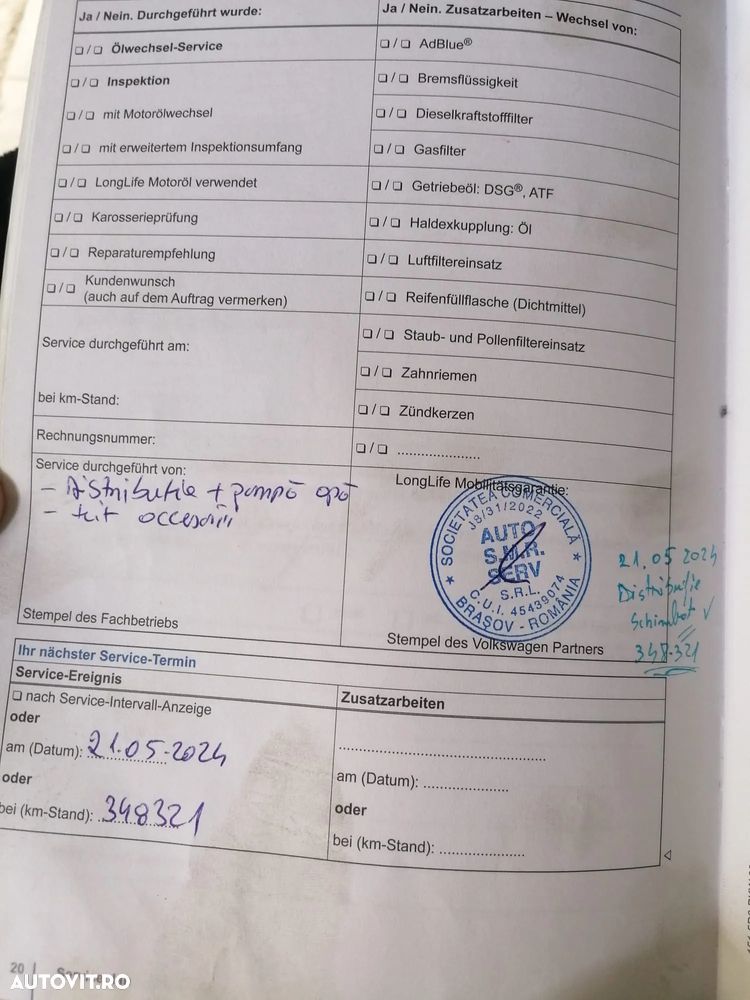 Ja / Nein. Durchgeführt wurde:
❏ / ❏ Ölwechsel-Service
❏ / ❏ Inspektion
❏ / ❏ mit Motorölwechsel
❏ / ❏ mit erweitertem Inspektionsumfang
❏ / ❏ LongLife Motoröl verwendet
❏ / ❏ Karosserieprüfung
❏ / ❏ Reparaturempfehlung
❏ / ❏ Kundenwunsch
(auch auf dem Auftrag vermerken)
Service durchgeführt am:
bei km-Stand:
Rechnungsnummer:
Service durchgeführt von:
- Distributie + pompă apă
- kit accesorii
Stempel des Fachbetriebs
Ja / Nein. Zusatzarbeiten – Wechsel von:
❏ / ❏ AdBlue®
❏ / ❏ Bremsflüssigkeit
❏ / ❏ Dieselkraftstofffilter
❏ / ❏ Gasfilter
❏ / ❏ Getriebeöl: DSG®, ATF
❏ / ❏ Haldexkupplung: Öl
❏ / ❏ Luftfiltereinsatz
❏ / ❏ Reifenfüllflasche (Dichtmittel)
❏ / ❏ Staub- und Pollenfiltereinsatz
❏ / ❏ Zahnriemen
❏ / ❏ Zündkerzen
❏ / ❏ .....................
LongLife Mobilitätsgarantie:
SOCIETATEA COMERCIALĂ
J8/31/2022
AUTO
S.M.R.
SERV
S.R.L.
C.U.I. 45439074
BRAȘOV - ROMÂNIA
Stempel des Volkswagen Partners
21.05 2024
Distribuție
Schimbat √
348.321
Ihr nächster Service-Termin
Service-Ereignis
❏ nach Service-Intervall-Anzeige
oder
am (Datum): 21.05.2024
oder
bei (km-Stand): 348321
Zusatzarbeiten
am (Datum): .....................
oder
bei (km-Stand): .....................
20
AUTOVIT.RO